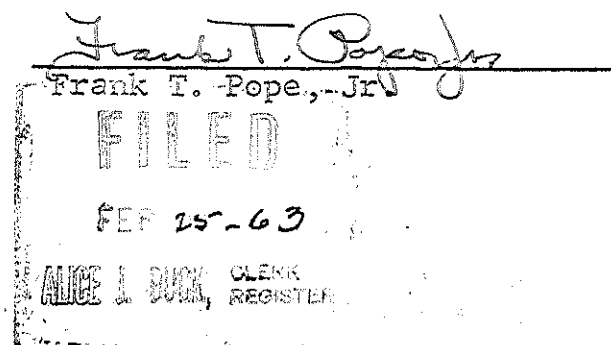 Frank T. Pope Jr
Frank T. Pope, Jr.
FILED
FEB 25-63
ALICE J. DUCK, CLERK
REGISTER